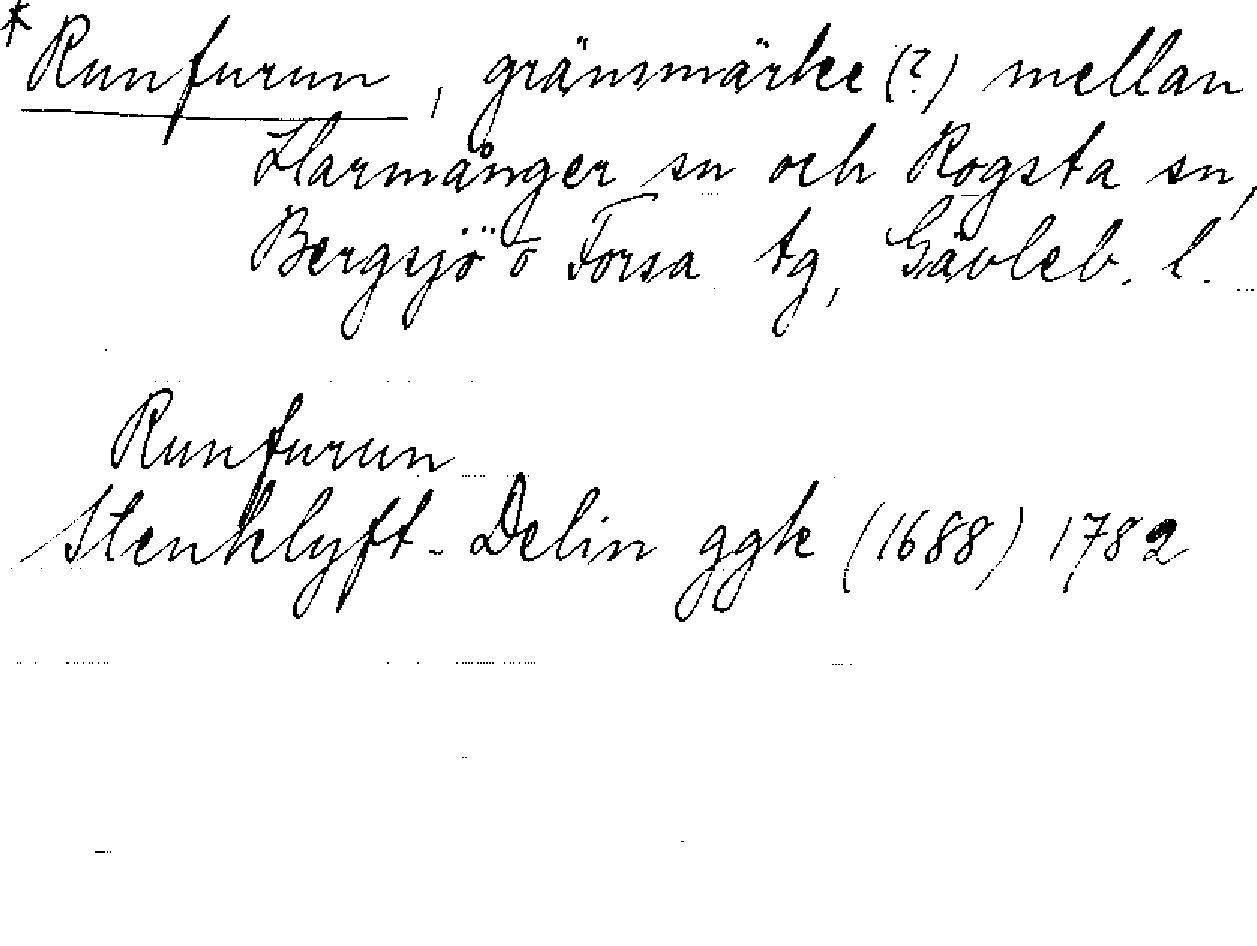 *Runfurun, gränsmärke (?) mellan
Harmånger sn och Rogsta sn,
Bergsjö o Forsa tg, Gävleb. l.
Runfurun
Stenklyft- Delin ggk (1688) 1782